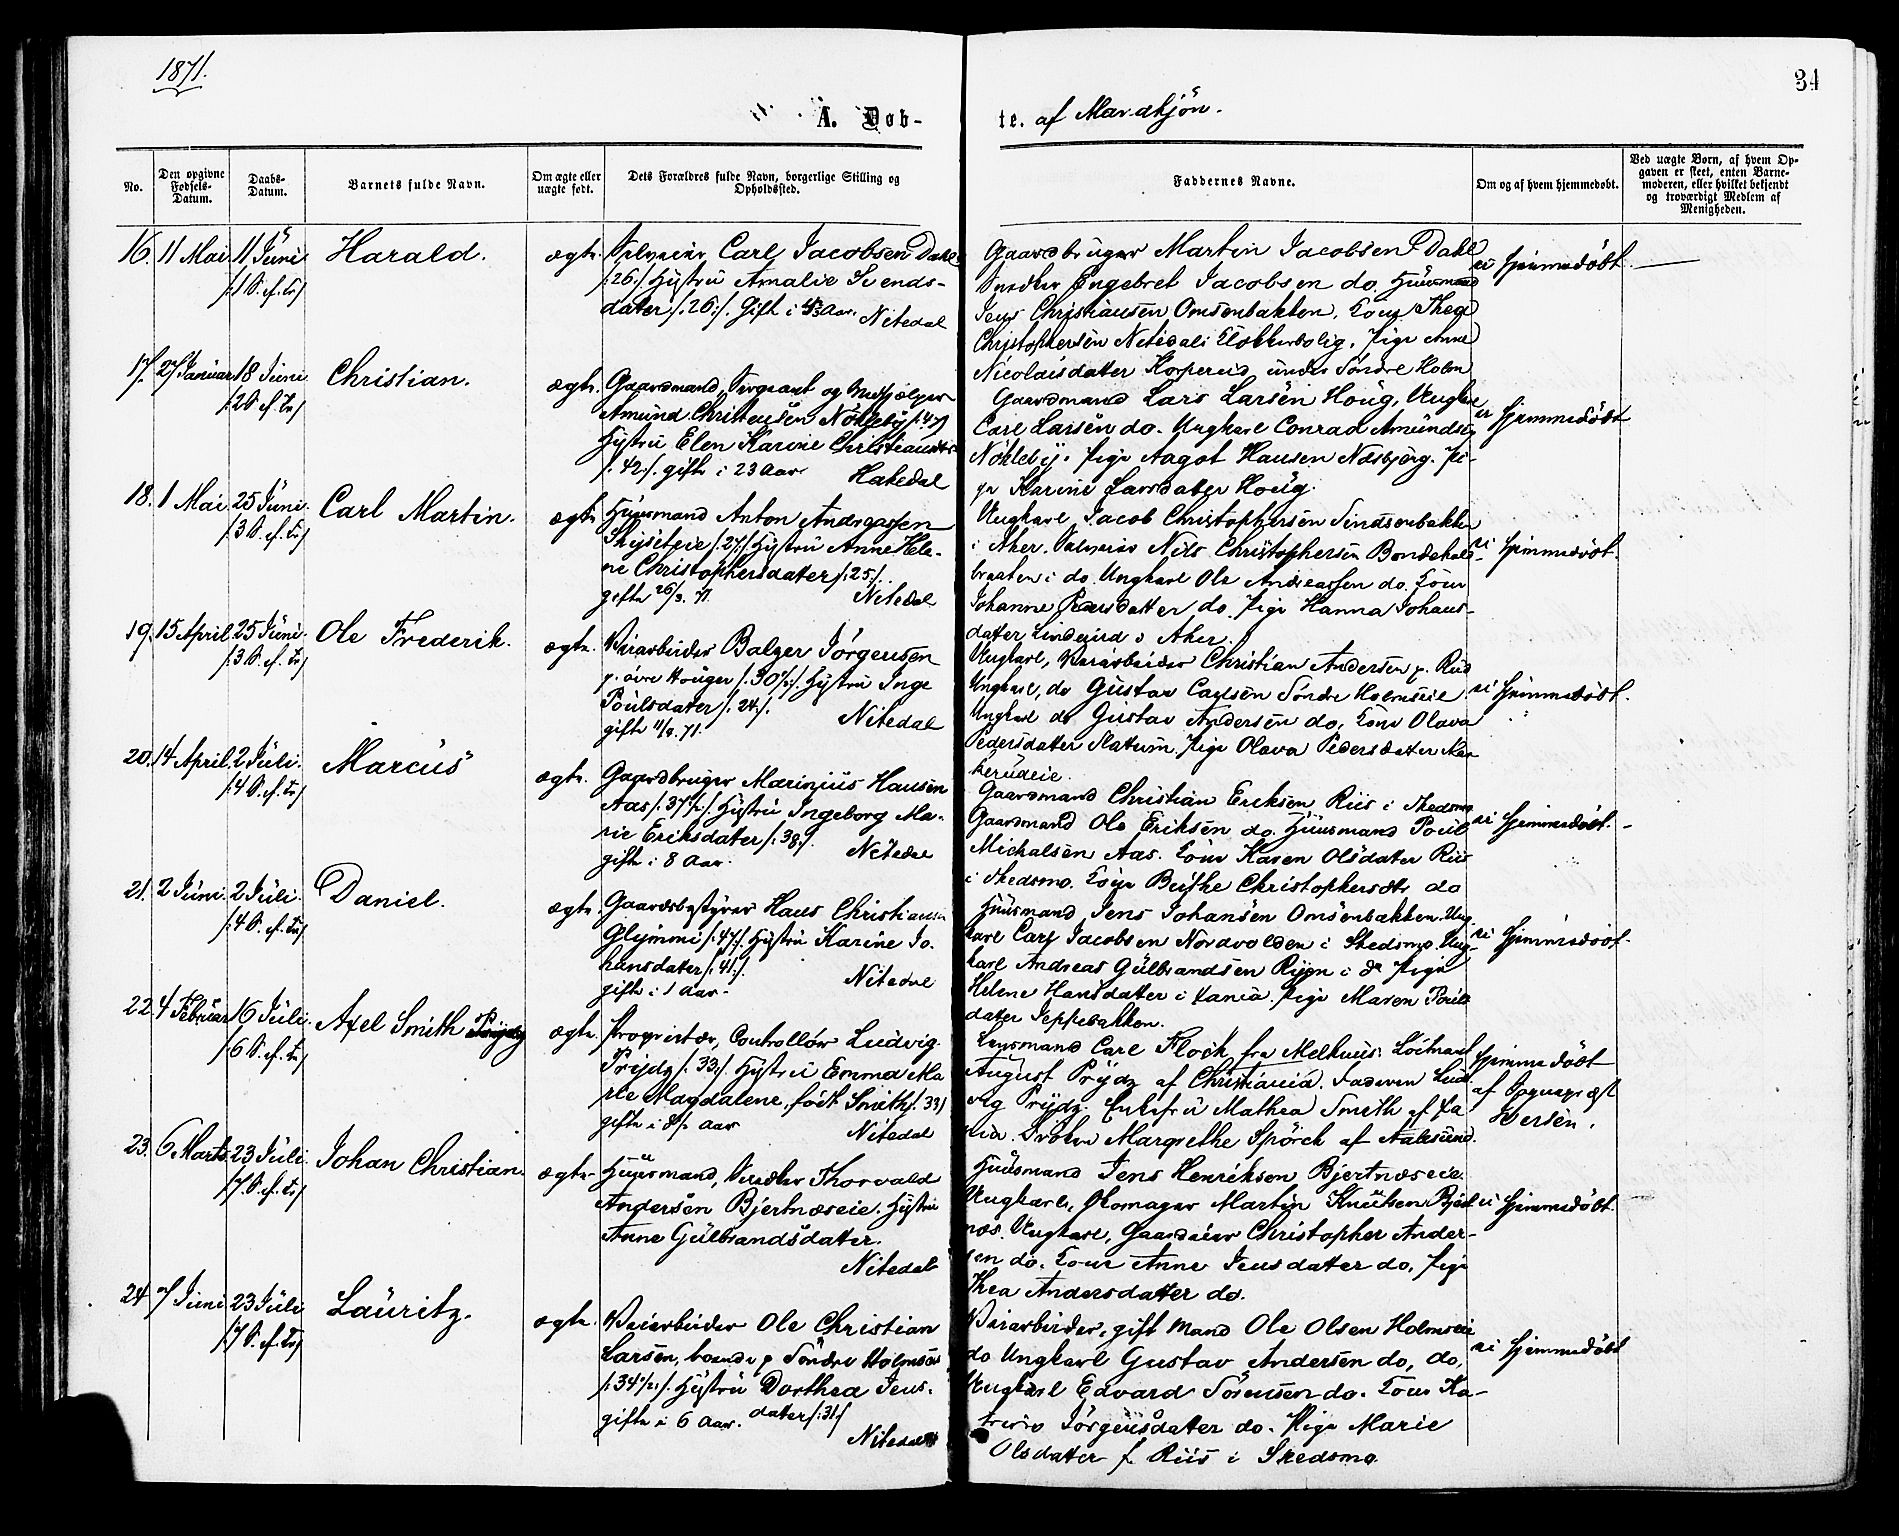 1871.
34
A. Døb-
te. af Mandkjön.
No.
Den opgivne Fødsels-Datum.
Daabs-Datum.
Barnets fulde Navn.
Om ægte eller uægte født.
Dets Forældres fulde Navn, borgerlige Stilling og Opholdssted.
Faddernes Navne.
Om og af hvem hjemmedøbt.
Ved uægte Børn, af hvem Opgaven er skeet, enten Barnemoderen, eller hvilket bekjendt og troværdigt Medlem af Menigheden.
16. 11 Mai 11 Juni Harald. ægte. Selveier Carl Jacobsen Dahl
/:1 S. ef. Tr/
/:26:/ Hustru Amalie Svends-
dater /:26:/. Gift i Aar. Nitedal
Gaardbruger Martin Jacobsen Dahl
Snedker Engebret Jacobsen do. Huusmand
Jens Christiansen Onsenbakken. Kone Thea
Christophersen Nitedals Klokkerbolig. Pige Anne
Nicolaisdater Korperud under Söndre Holm
ei hjemmedöbt.
17. 27 Januar 18 Juni Christian. ægte. Gaardmand, Sergeant og Medhjælper
/:2 S. ef. Tr/
Amund Christensen Nökleby /:47/
Hustru Elen Karine Christiansdtr
/:42:/. gifte i 23 Aar. Hakedal
Gaardmand Lars Larsen Houg, Ungkar
Carl Larsen do. Ungkarl Conrad Amundsen
Nökleby. Pige Aagot Hansen Næsbjerg. Pi-
ge Karine Larsdater Houg.
er hjemmedöbt
18. 1 Mai 25 Juni. Carl Martin. ægte Huusmand Anton Andreassen
/:3 S. ef. Tr/
Skyseteie /:27:/ Hustru Anne Hele-
ne Christophersdater /:25:/.
gifte 26/3. 71. Nitedal
Ungkarl Jacob Christophersen Sindsenbakken
i Aker. Selveier Nils Christophersen Bondekals-
braaten i do. Ungkarl Ole Andreassen do. Kone
Johanne Pedersdatter do. Pige Hanna Johans-
datter Linderud i Aker.
ei hjemmedöbt.
19. 15 April 25 Juni. Ole Frederik. ægte. Veiarbeider Balzer Jörgensen
/:3 S. ef. Tr/
p. övre Houger /:30½:/. Hustru Inge
Poulsdater /:24:/.
gifte 71. Nitedal
Ungkarl, Veiarbeider Christian Andersen p. Rud
Ungkarl, do Gustav Carlsen Söndre Holmseie
Ungkarl do Gustav Andersen do, Kone Olava
Pedersdatter Slatum. Pige Olava Pedersdatter
kerudeie.
ei hjemmedöbt.
20. 14 April. 2 Juli. Marcus ægte. Gaardbruger Marinius Hansen
/:4 S. ef. Tr/
Aas /:37½:/. Hustru Ingeborg Ma-
rie Eriksdater /:38:/.
gifte i 8 Aar. Nitedal
Gaardmand Christian Eriksen Riis i Skedsmo
Gaardmand Ole Eriksen do. Huusmand Poul
Michalsen Aas. Kone Karen Olsdater Riis
i Skedsmo. Kone Berthe Christophersdtr do
ei hjemmedöbt.
21. 2 Juni. 2 Juli. Daniel. ægte. Gaardsbestyrer Hans Christiansen
/:4 S. ef. Tr/
Glymmi /:47:/. Hustru Karine Jo-
hansdater /:41:/.
gifte i 1 Aar. Nitedal
Huusmand Jens Johansen Onsenbakken. Ung-
karl Carl Jacobsen Nordvolden i Skedsmo. Ung-
karl Andreas Gulbrandsen Ryen i do Pige
Helene Hansdatter i Kania. Pige Maren Pouls
dater Jeppebakken.
ei hjemmedöbt.
22. 4 Februar 16 Juli. Axel Smith Prydz ægte. Proprietær, Controllör Ludvig
/:6 S. ef. Tr/
Prydz /:33:/. Hustru Emma Ma
rie Magdalene, födt Smith /:33/
gifte i 8½ Aar Nitedal
Lensmand Carl Flock fra Melhuus. Löitnant
August Prydz af Christiania. Faderen Lud-
vig Prydz. Enkefru Mathea Smith af
Fröken Margrethe Spörck af Aalesund.
hjemmedöbt
af Sognepræst
Iversen.
23. 6 Marts 23 Juli. Johan Christian. ægte. Huusmand, Snedker Thorvald
/:7. S. ef. Tr/
Andersen Bjertnæseie. Hustru
Anne Gulbrandsdatter.
Nitedal
Huusmand Jens Henriksen Bjertnæseie.
Ungkarl, Skomager Martin Knutsen Bjert-
næs. Ungkarl, Gaardeier Christopher Ander-
sen do. Kone Anne Jensdatter do, Pige
Thea Andersdatter do.
ei hjemmedöbt.
24. 7 Juni 23 Juli Lauritz. ægte. Veiarbeider Ole Christian
/:7 S. ef. Tr/
Larsen, boende p Söndre Holmseie
/:34½:/. Hustru Dorthea Jens-
gifte i 6 Aar. dater /:31/
Nitedal
Veiarbeider, gift Mand Ole Olsen Holmseie
do Ungkarl Gustav Andersen do, do,
Ungkarl Edvard Sörensen do. Kone Ka-
trine Jörgensdater do. Pige Marie
Olsdatter f. Riis i Skedsmo.
ei hjemmedöbt